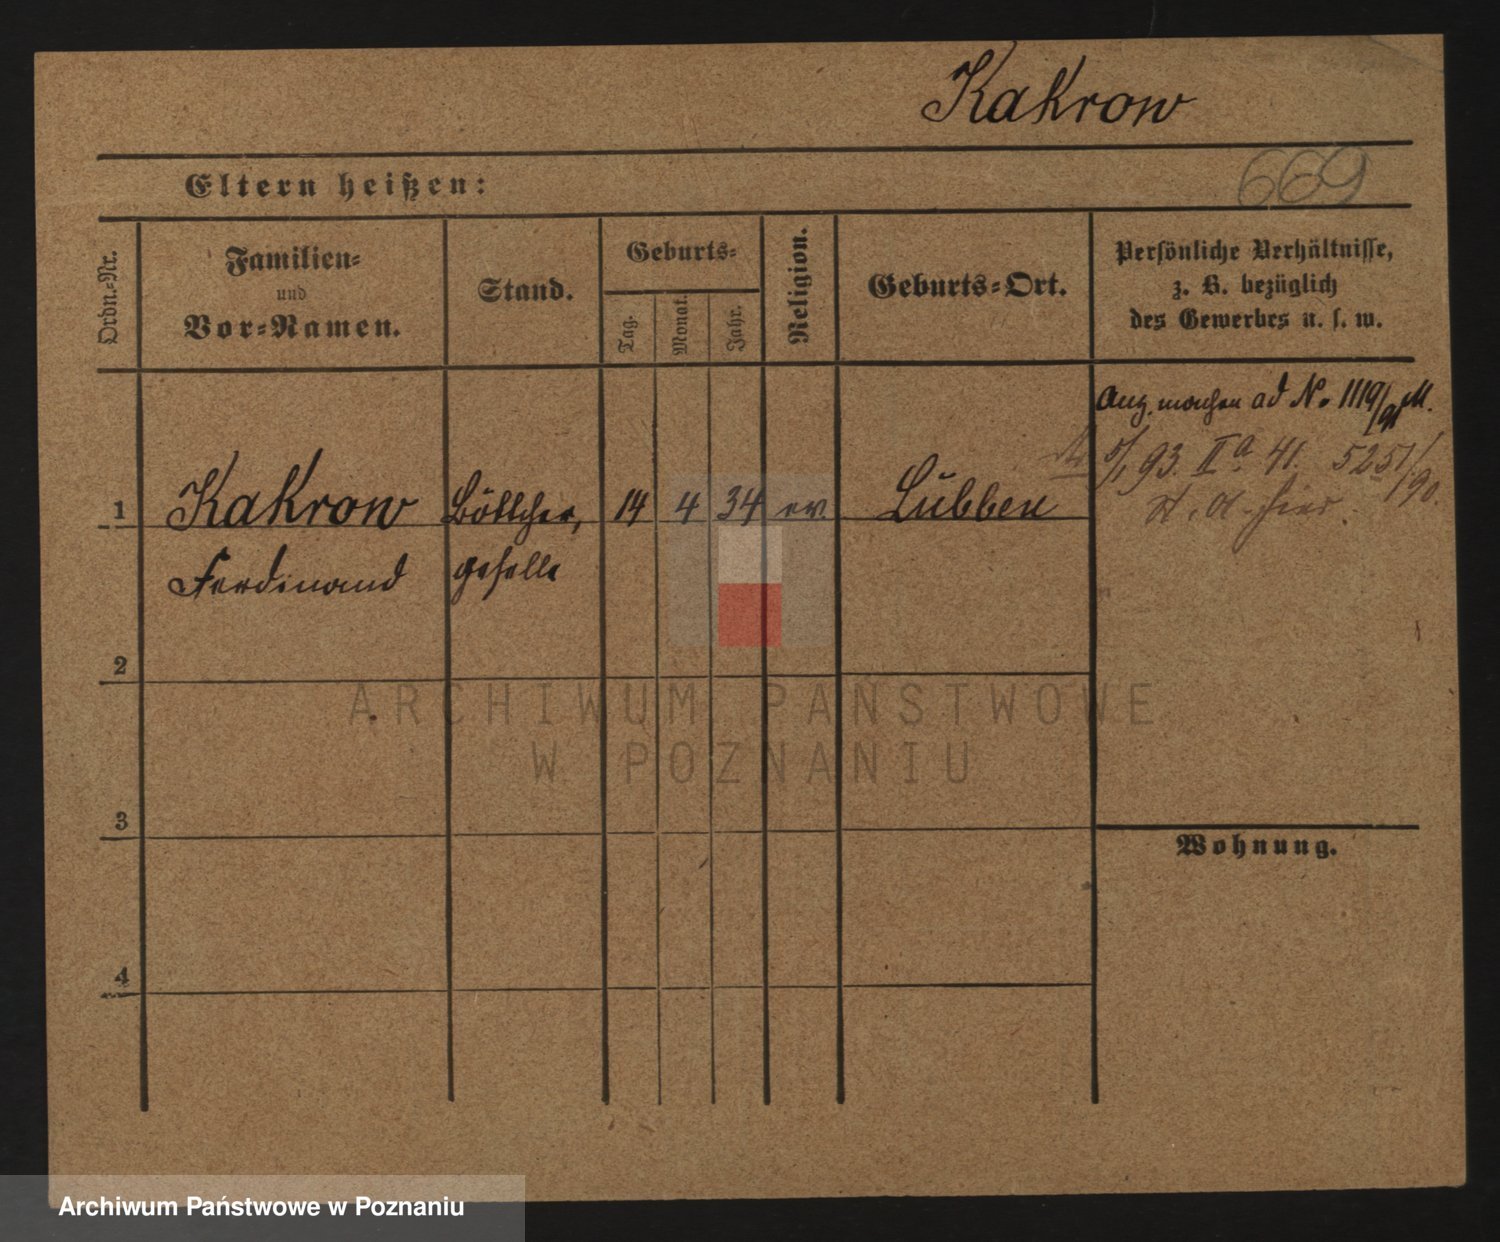 Kakrow
669
Eltern heißen:
Ordn.-Nr.
Familien-
und
Vor-Namen.
Stand.
Geburts-
Tag.
Monat.
Jahr.
Religion.
Geburts-Ort.
Persönliche Verhältnisse,
z. B. bezüglich
des Gewerbes u. s. w.
ad No 1119/91 M.
5/1 93. IIa 41. 5251/90.
1 Kakrow Böttcher, 14 4 34 ev. Lübben
Ferdinand geselle
2
3
Wohnung.
4
ARCHIWUM PAŃSTWOWE
W POZNANIU
Archiwum Państwowe w Poznaniu